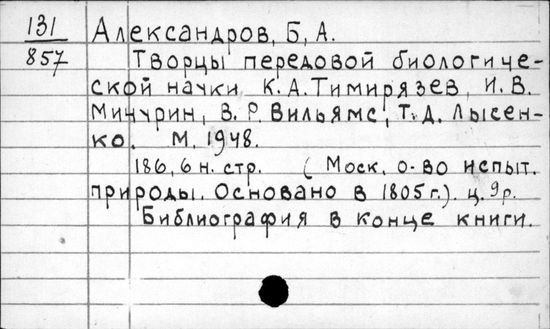 131
857
Александров, Б, А.
Творцы передовой биологиче-
ской науки К. А. Тимирязев, И. В.
Мичурин, В. Р. Вильямс, Т. Д. Лысен-
ко. М, 1948.
186, 6 н. стр. ( Моск. о-во испыт.
природы. Основано в 1805 г.). ц. 9 р.
Библиография в конце книги.